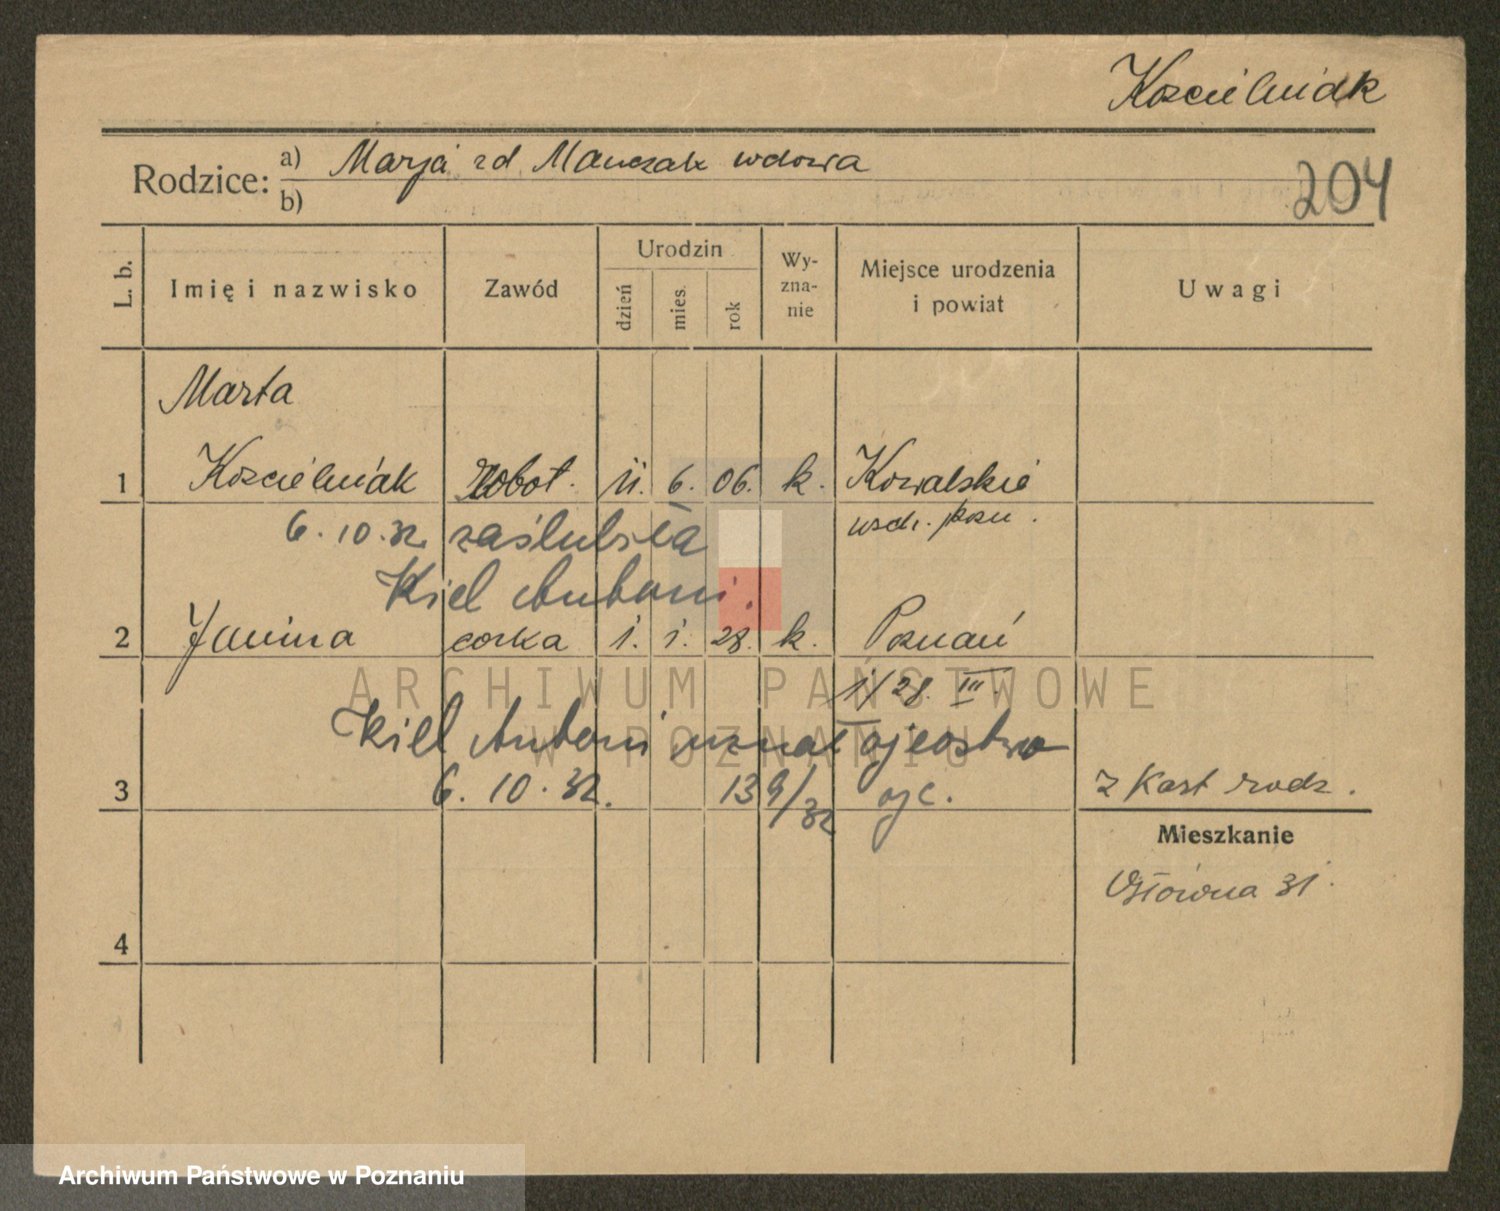 Kościelniak
Rodzice: a) Marja zd Manczak wdowa
b)
204
L. b.
Imię i nazwisko
Zawód
Urodzin
dzień
mies.
rok
Wy-
zna-
nie
Miejsce urodzenia
i powiat
Uwagi
Marta
1 Kościelniak robot. 11. 6. 06. k. Kowalskie
6.10.32 zaślubiła wsch. pozn.
Kiel Antoni.
2 Janina corka 1. 1. 28. k. Poznań
1/28. III.
Kiel Antoni uznał ojcostwo
3 6. 10. 32. 139/32 ojc. z kart rodz.
Mieszkanie
31.
4
ARCHIWUM PAŃSTWOWE
W POZNANIU
Archiwum Państwowe w Poznaniu